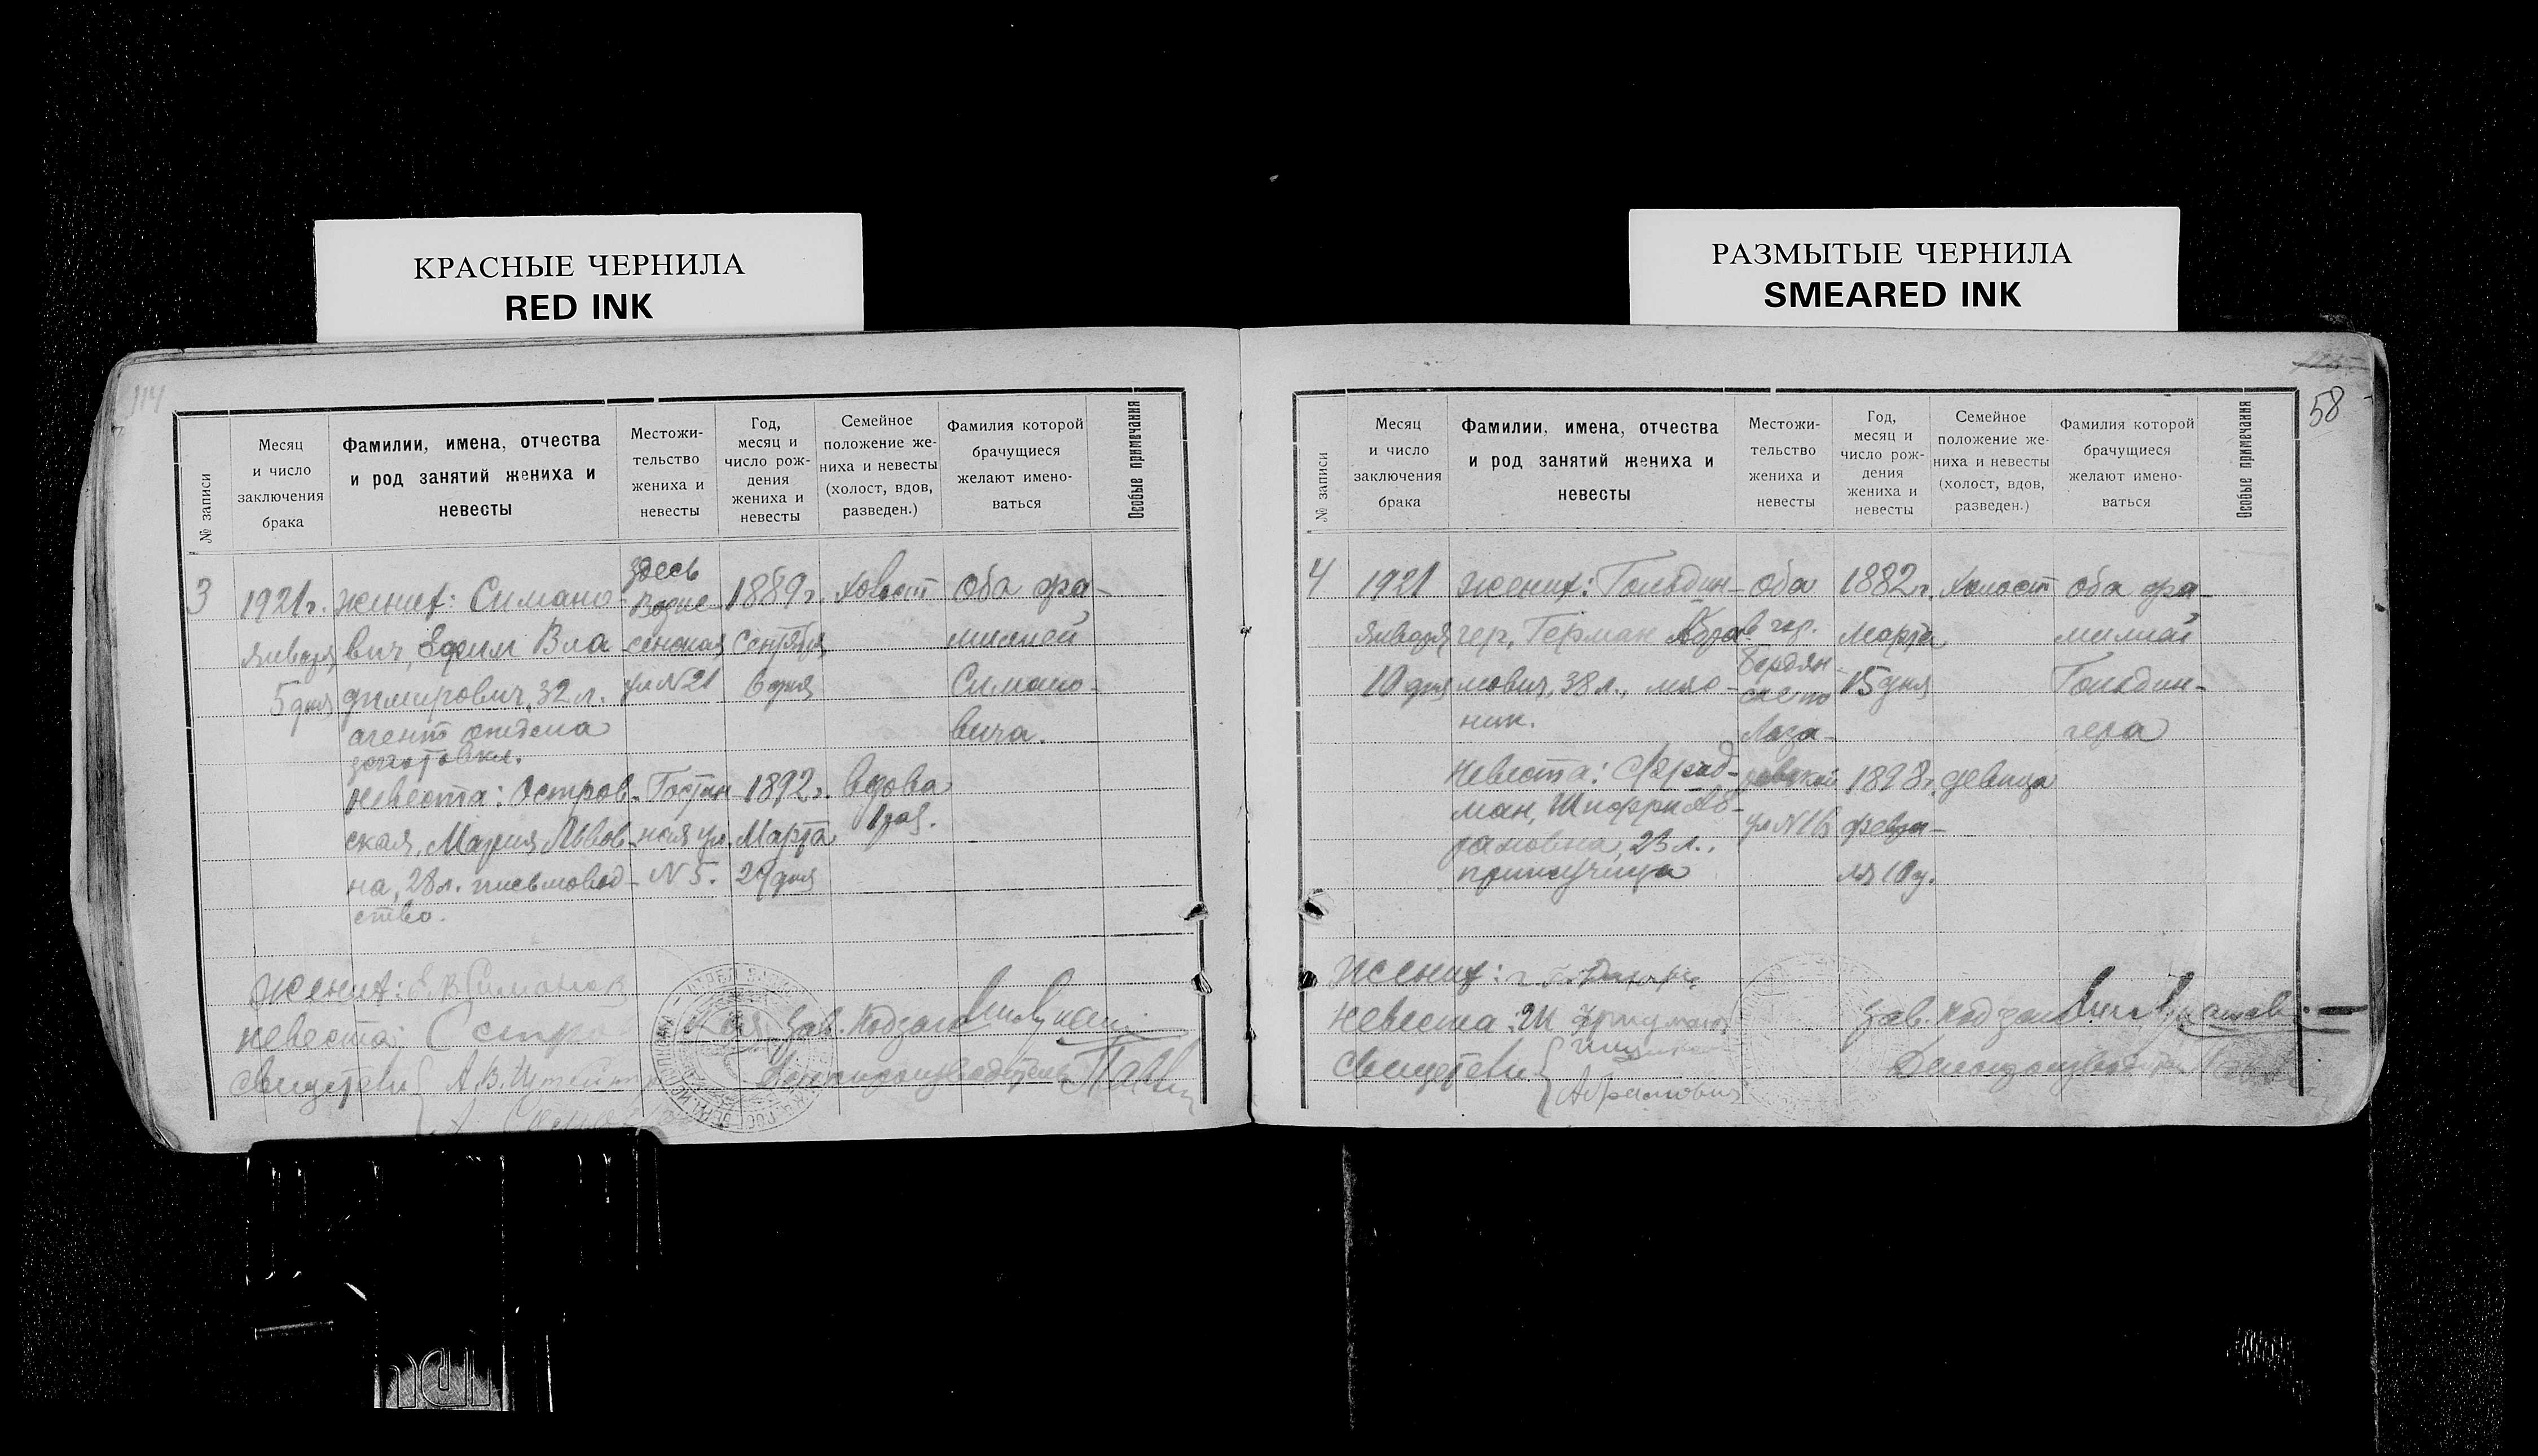 КРАСНЫЕ ЧЕРНИЛА
RED INK
РАЗМЫТЫЕ ЧЕРНИЛА
SMEARED INK
114
№ записи
Месяц
и число
заключения
брака
Фамилии, имена, отчества
и род занятий жениха и
невесты
Местожи-
тельство
жениха и
невесты
Год,
месяц и
число рож-
дения
жениха и
невесты
Семейное
положение же-
ниха и невесты
(холост, вдов,
разведен.)
Фамилия которой
брачущиеся
желают имено-
ваться
Особые примечания
3
1921 г.
января
5 дня
жених: Симано-
вич, Ефим Вла
димирович, 32 л.
агент отдела
заготовки.
невеста: Остров-
ская, Мария Львов-
на, 28 л. письмовод-
ство.
здесь
Возне-
сенская
ул N 21
Гостин
ная ул.
N 5.
1889 г.
Сентября
6 дня
1892 г.
Марта
29 дня
холост
вдова
1 раз.
Оба фа-
милией
Симано-
вича.
жених:
невеста:
свидетели
Зав. Подзаг
Делопроизводитель
58
№ записи
Месяц
и число
заключения
брака
Фамилии, имена, отчества
и род занятий жениха и
невесты
Местожи-
тельство
жениха и
невесты
Год,
месяц и
число рож-
дения
жениха и
невесты
Семейное
положение же-
ниха и невесты
(холост, вдов,
разведен.)
Фамилия которой
брачущиеся
желают имено-
ваться
Особые примечания
4
1921
января
10 дня
жених: Гольдин-
гер, Герман
мович, 38 л., мяс-
ник.
невеста: Фрид-
ман, Шифра Аб-
рамовна, 23 л.,
Оба
в гор.
Бердян-
ске по
Лаза-
ревской
ул N 16
1882 г.
Марта
15 дня
1898 г.
февра-
ля 10 д.
холост
девица
Оба фа-
милией
Гольдин-
гера
Жених:
Невеста:
Свидетели
Абрамович
Зав. Подзаг
Делопроизводитель